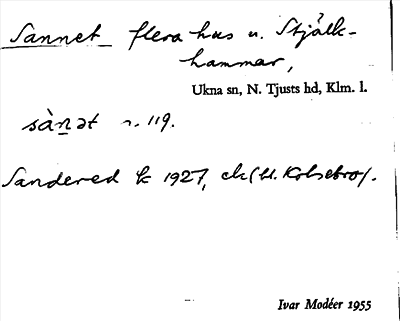 Sannet flera hus u. Stjälk-
hammar,
Ukna sn, N. Tjusts hd, Klm. l.
sàn̲ət s. 119.
Sandered k 1927, ek (bl. Kolsebro).
Ivar Modéer 1955